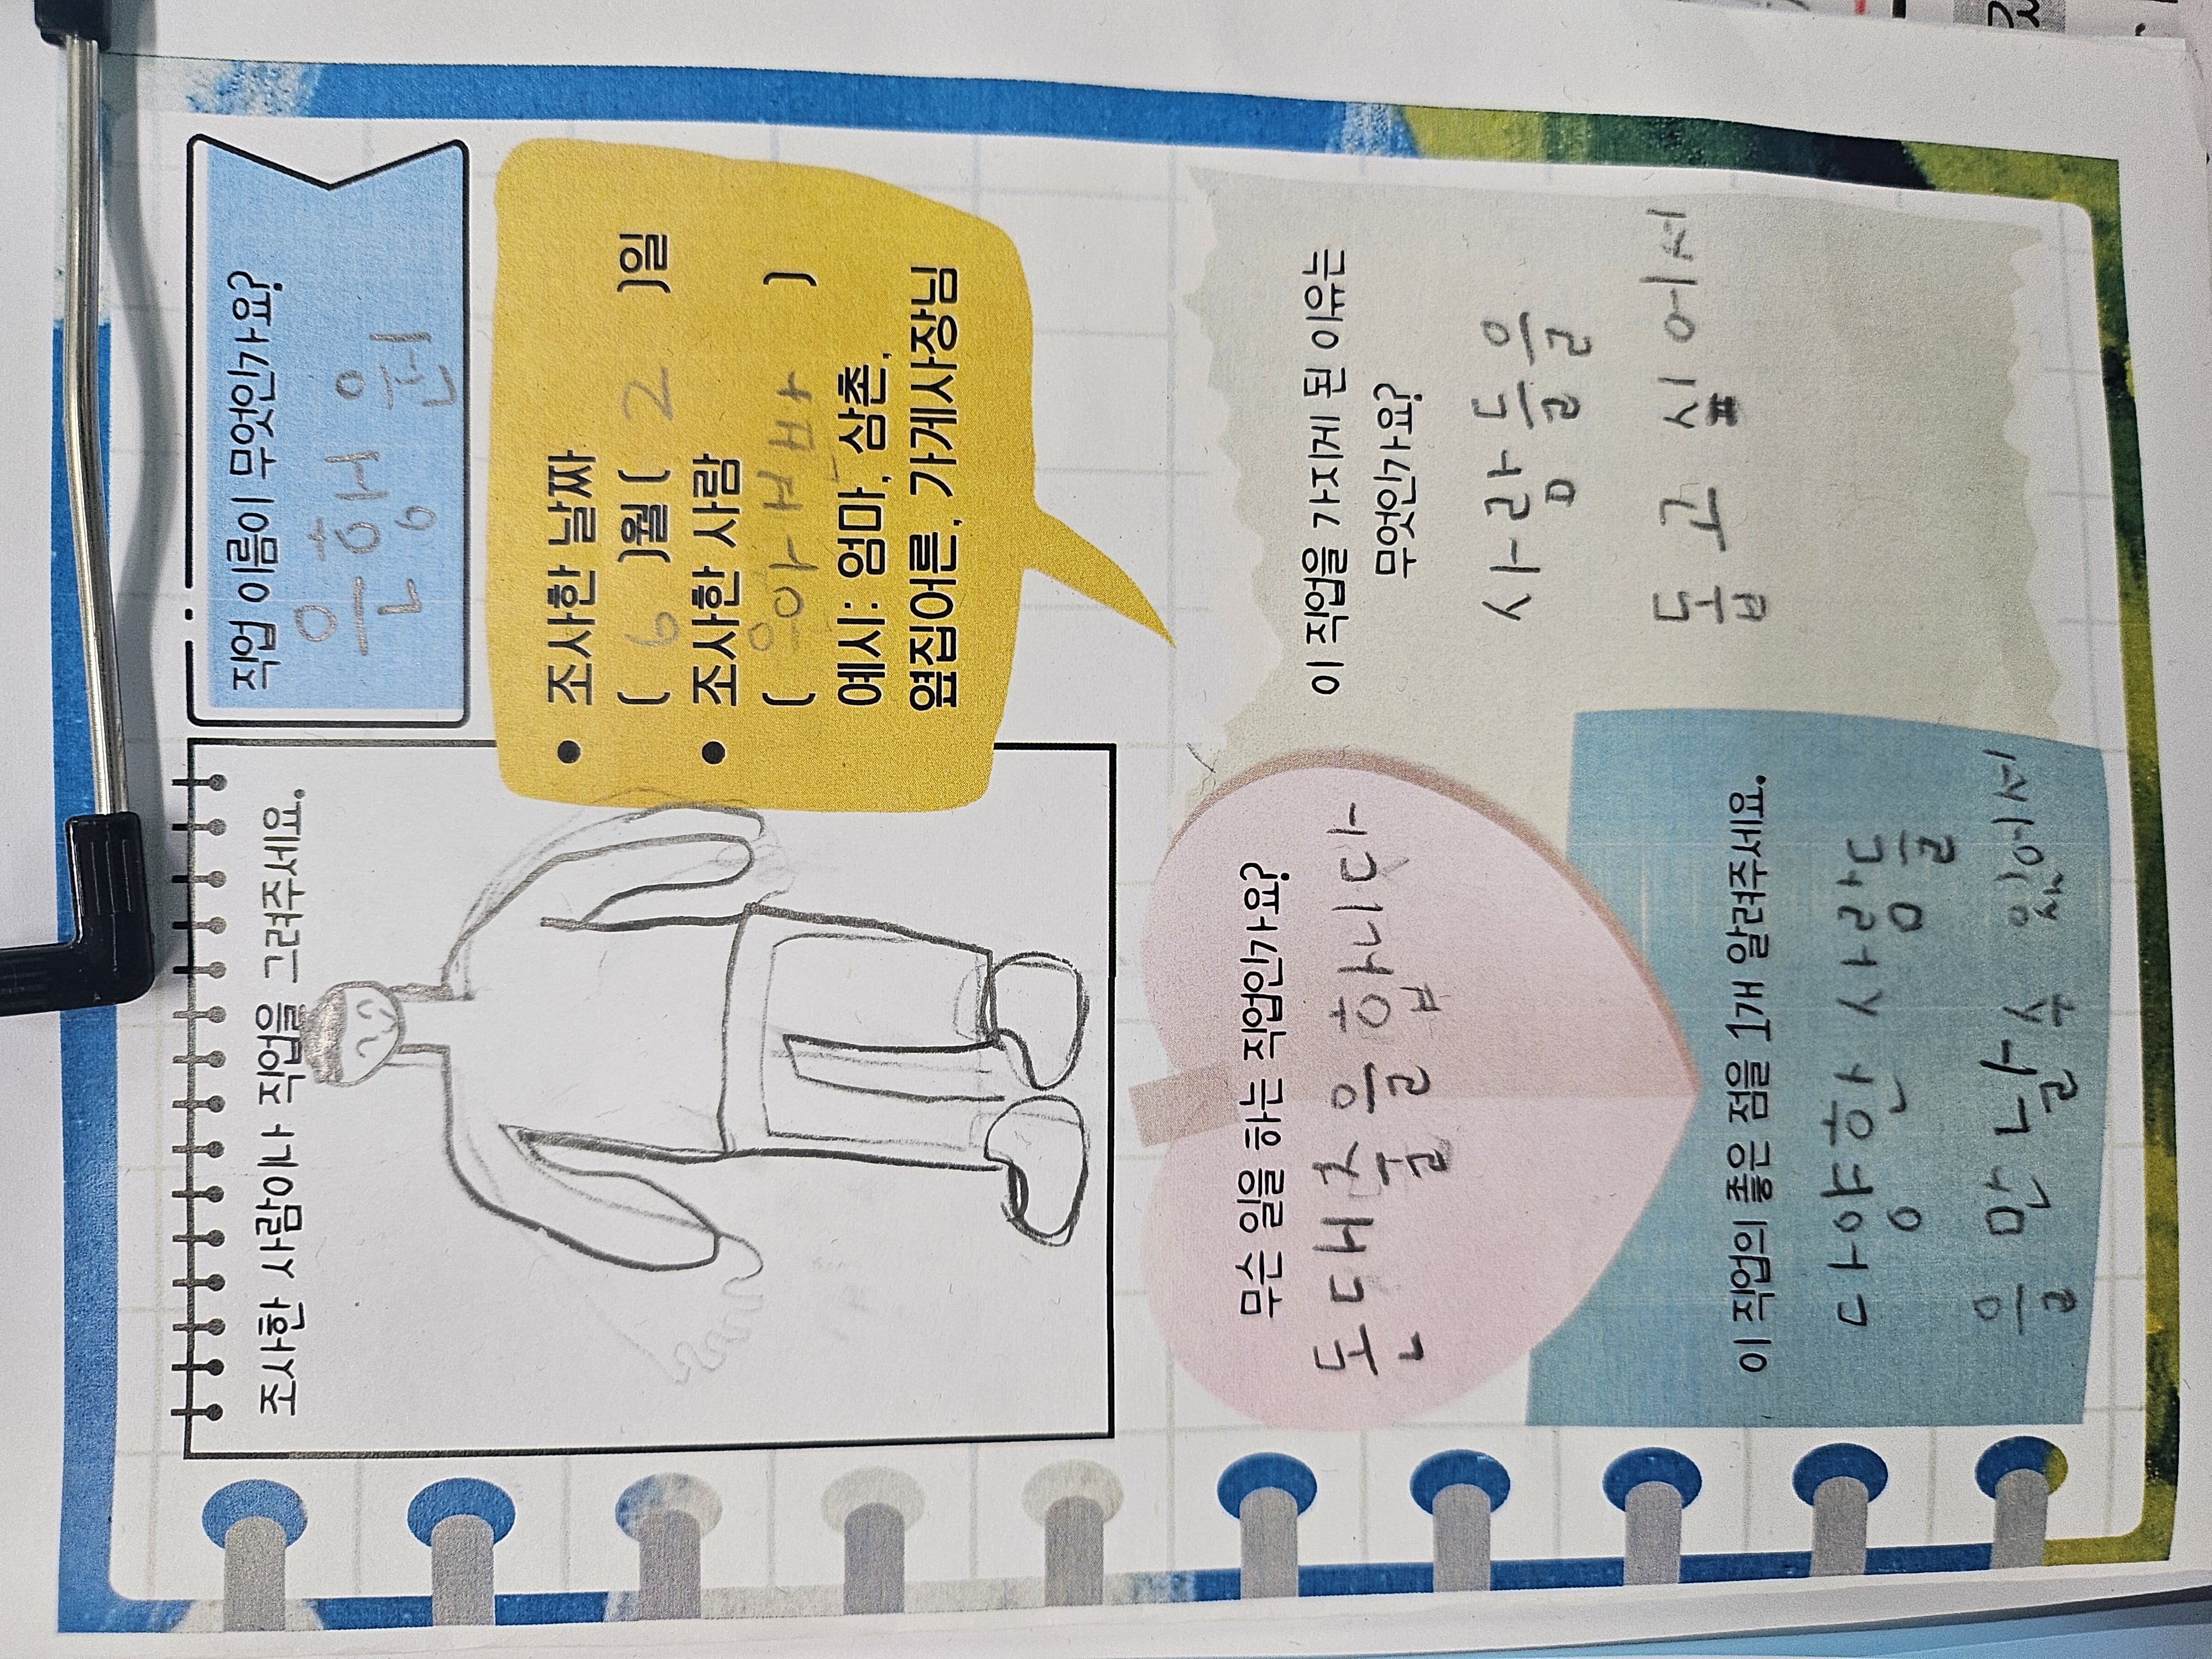 조사한 사람이나 직업을 그려주세요.
직업 이름이 무엇인가요?
은행원
• 조사한 날짜
( 6 )월 ( 2 )일
• 조사한 사람
( )
예시: 엄마, 삼촌,
옆집어른, 가게사장님
무슨 일을 하는 직업인가요?
돈 대출을 합니다
이 직업을 가지게 된 이유는
무엇인가요?
사람들을
돕고 싶어서
이 직업의 좋은 점을 1개 알려주세요.
다양한 사람들
을 만날 수 있어서